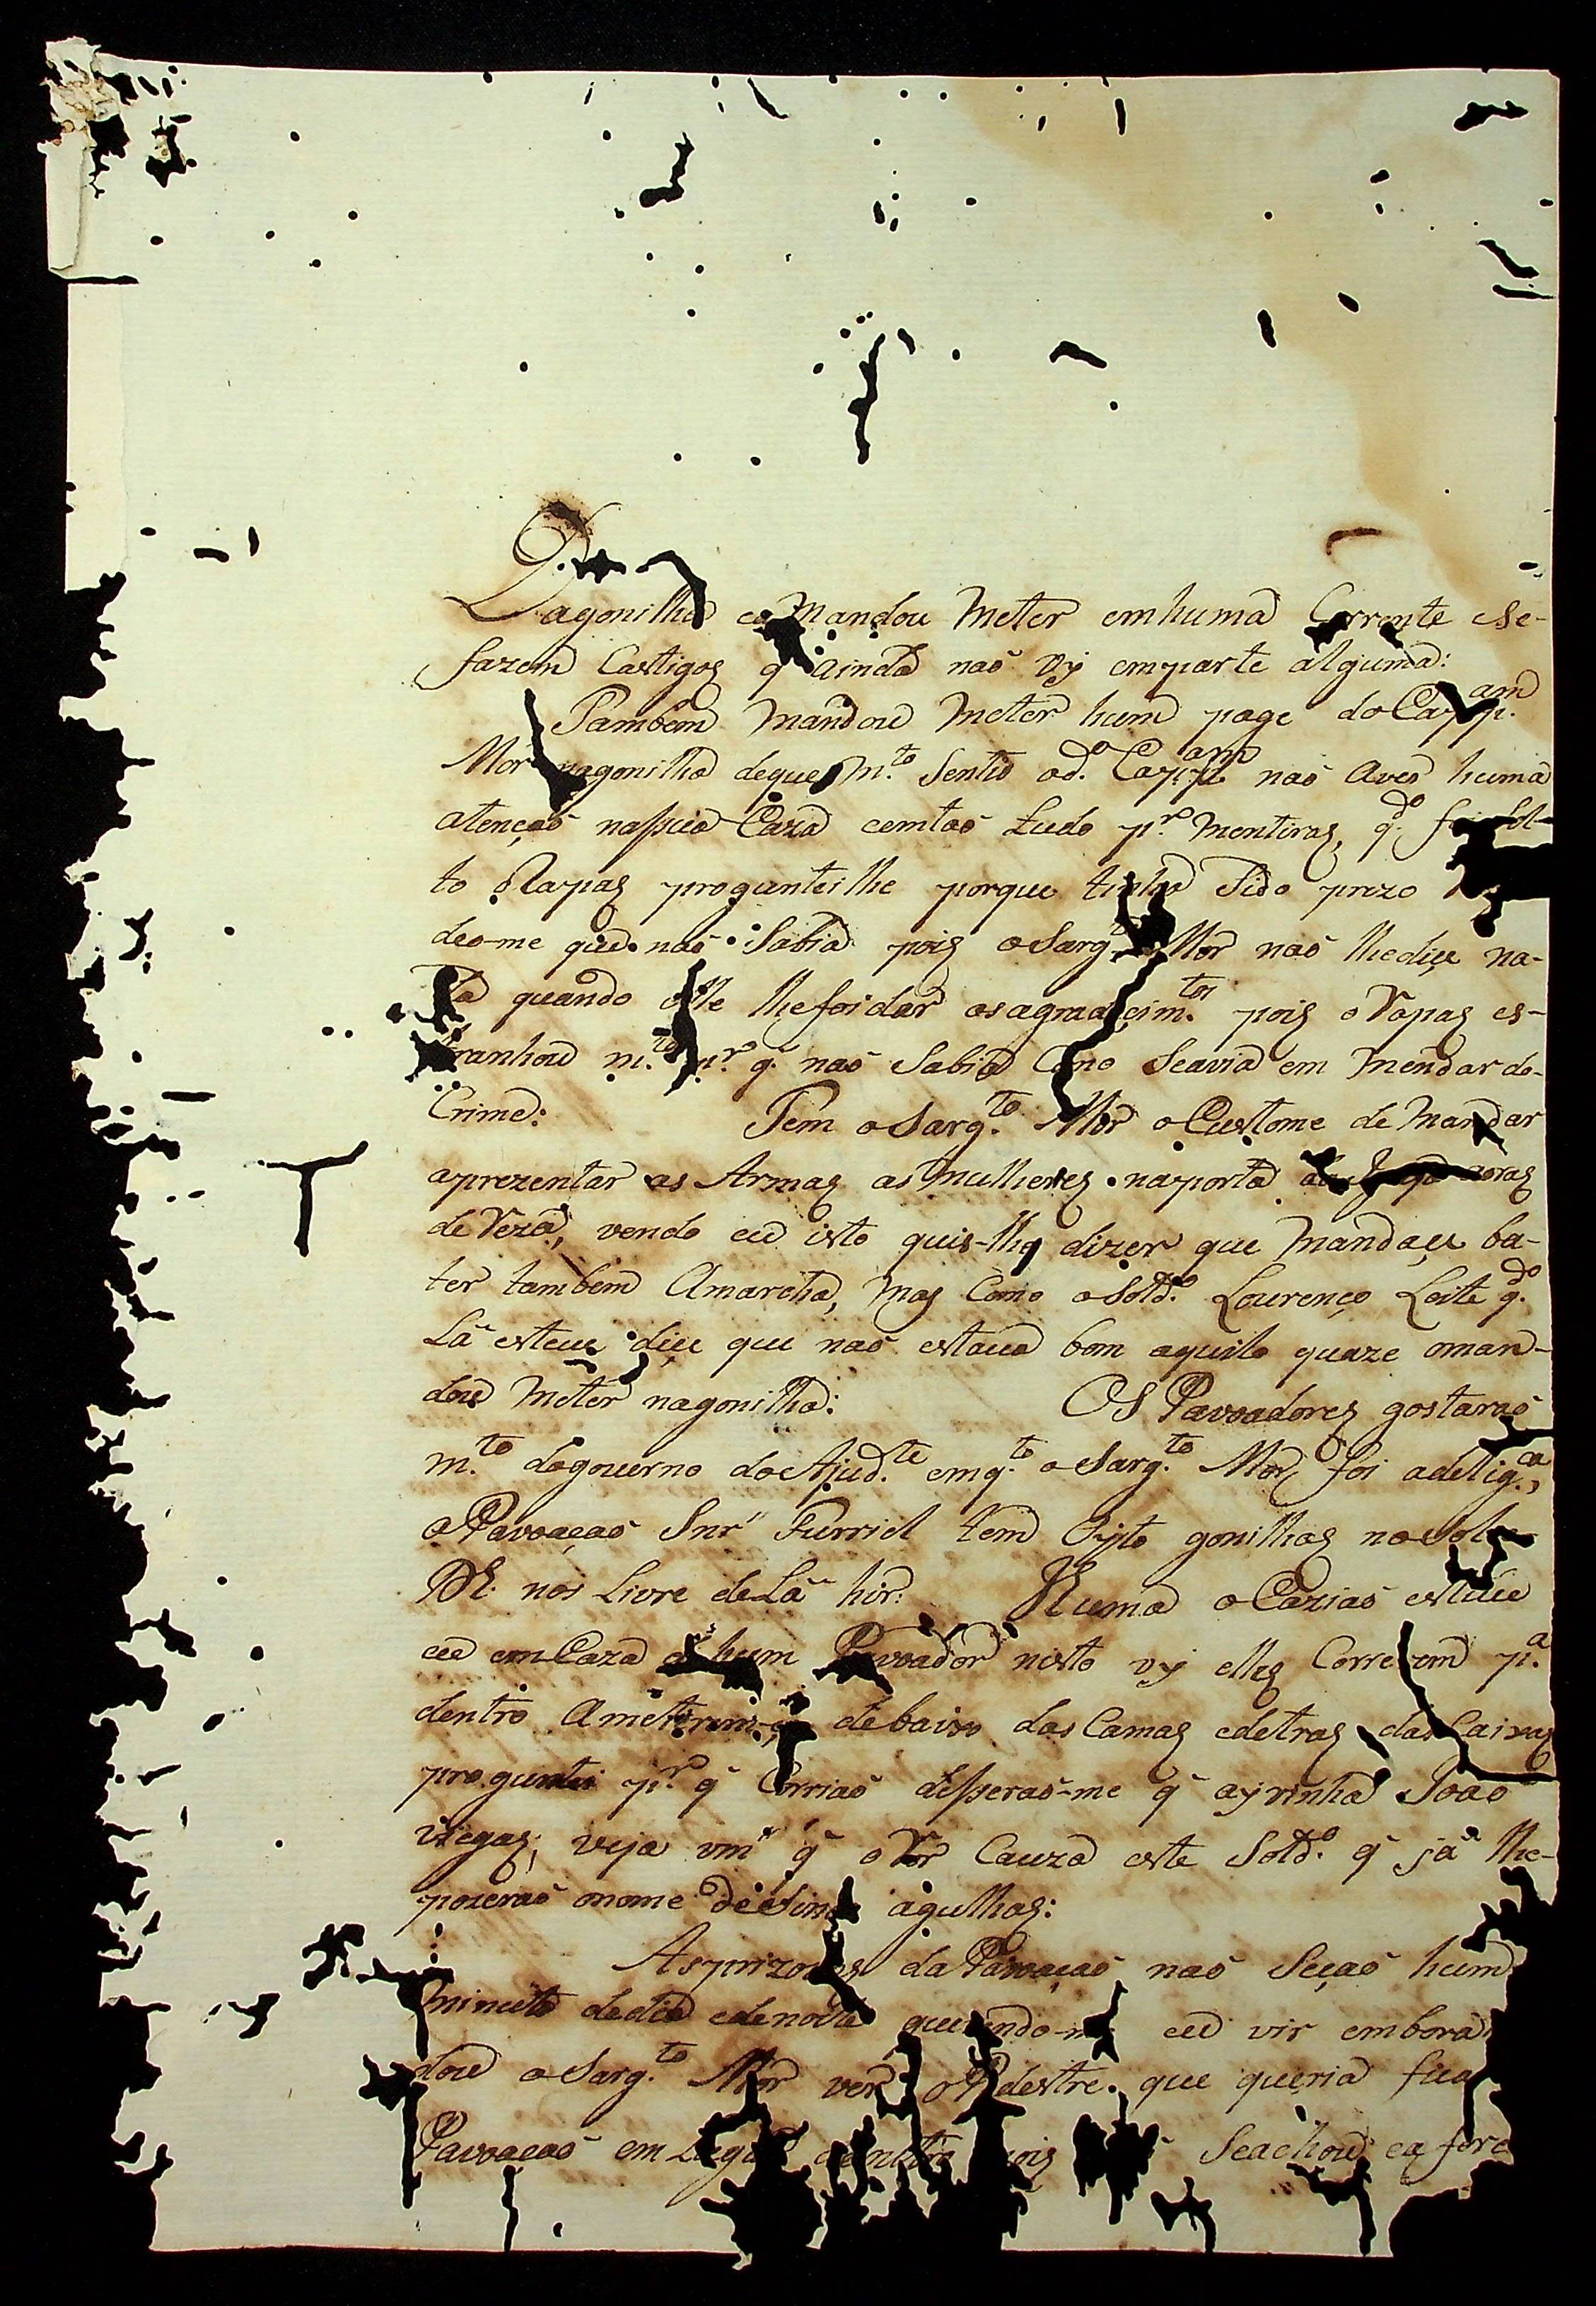 Dagonilha e Mandou Meter emhuma Corrente ese-
fazem Castigos q̃ ainda naõ vy emparte alguma:
Tambem Mandou Meter hum page do Capp.am
Mor nagonilha deque m.to Sentio od.o Cap.am naõ Aver huma
atençaõ nasua Caza cemtaõ tudo p.r mentiras, q.do foi Sol-
to o Rapas proguntei lhe porque tinha Sido prezo
deo-me que naõ Sabia pois o Sarg.to Mor naõ lhediçe na-
da quando elle lhefoi dar osagradeçim.tos pois o Rapas es-
tranhou m.to p.r q̃ naõ Sabia Como Seavia em mendar do-
Crime: Tem o Sarg.to Mór o Custome de Mandar
aprezentar as Armas as mulheres naporta aoras
de Reza, vendo eu isto quis-lhe dizer que Mandaçe ba-
ter tambem Amarcha, mas Como o Sold.o Lourenço Leite q.do
Lâ esteve diçe que naõ estava bom aquilo quaze oman-
dou Meter nagonilha: OS Pavoadores gostaraõ
m.to dogoverno do Ajud.te emq.to o Sarg.to Mor foi adelig.ca,
a Pavoaçaõ Snr' Furriel tem Oyto gonilhas no Solo
DS. nos Livre de Lâ hir: Numa o Caziaõ estive
eu em Caza de hum Pavoador nisto vy elles Correrem p.a
dentro Ameterem-çe debaixo das Camas edetras das Caixas
proguntei p.r q̃ Corriaõ disseraõ-me q̃ ay vinha Joaõ
viegas, veja vm q̃ o Ror Cauza este Sold.o q̃ jâ lhe-
pozeraõ onome de agulhas:
Asprizoens da Pavoaçaõ naõ Seçaõ hum
minuto dedia edenoite querendo-me eu vir embora
dou o Sarg.to Mor ver o Pedestre que queria fica
Pavoaçaõ em Lugar pois Seachou